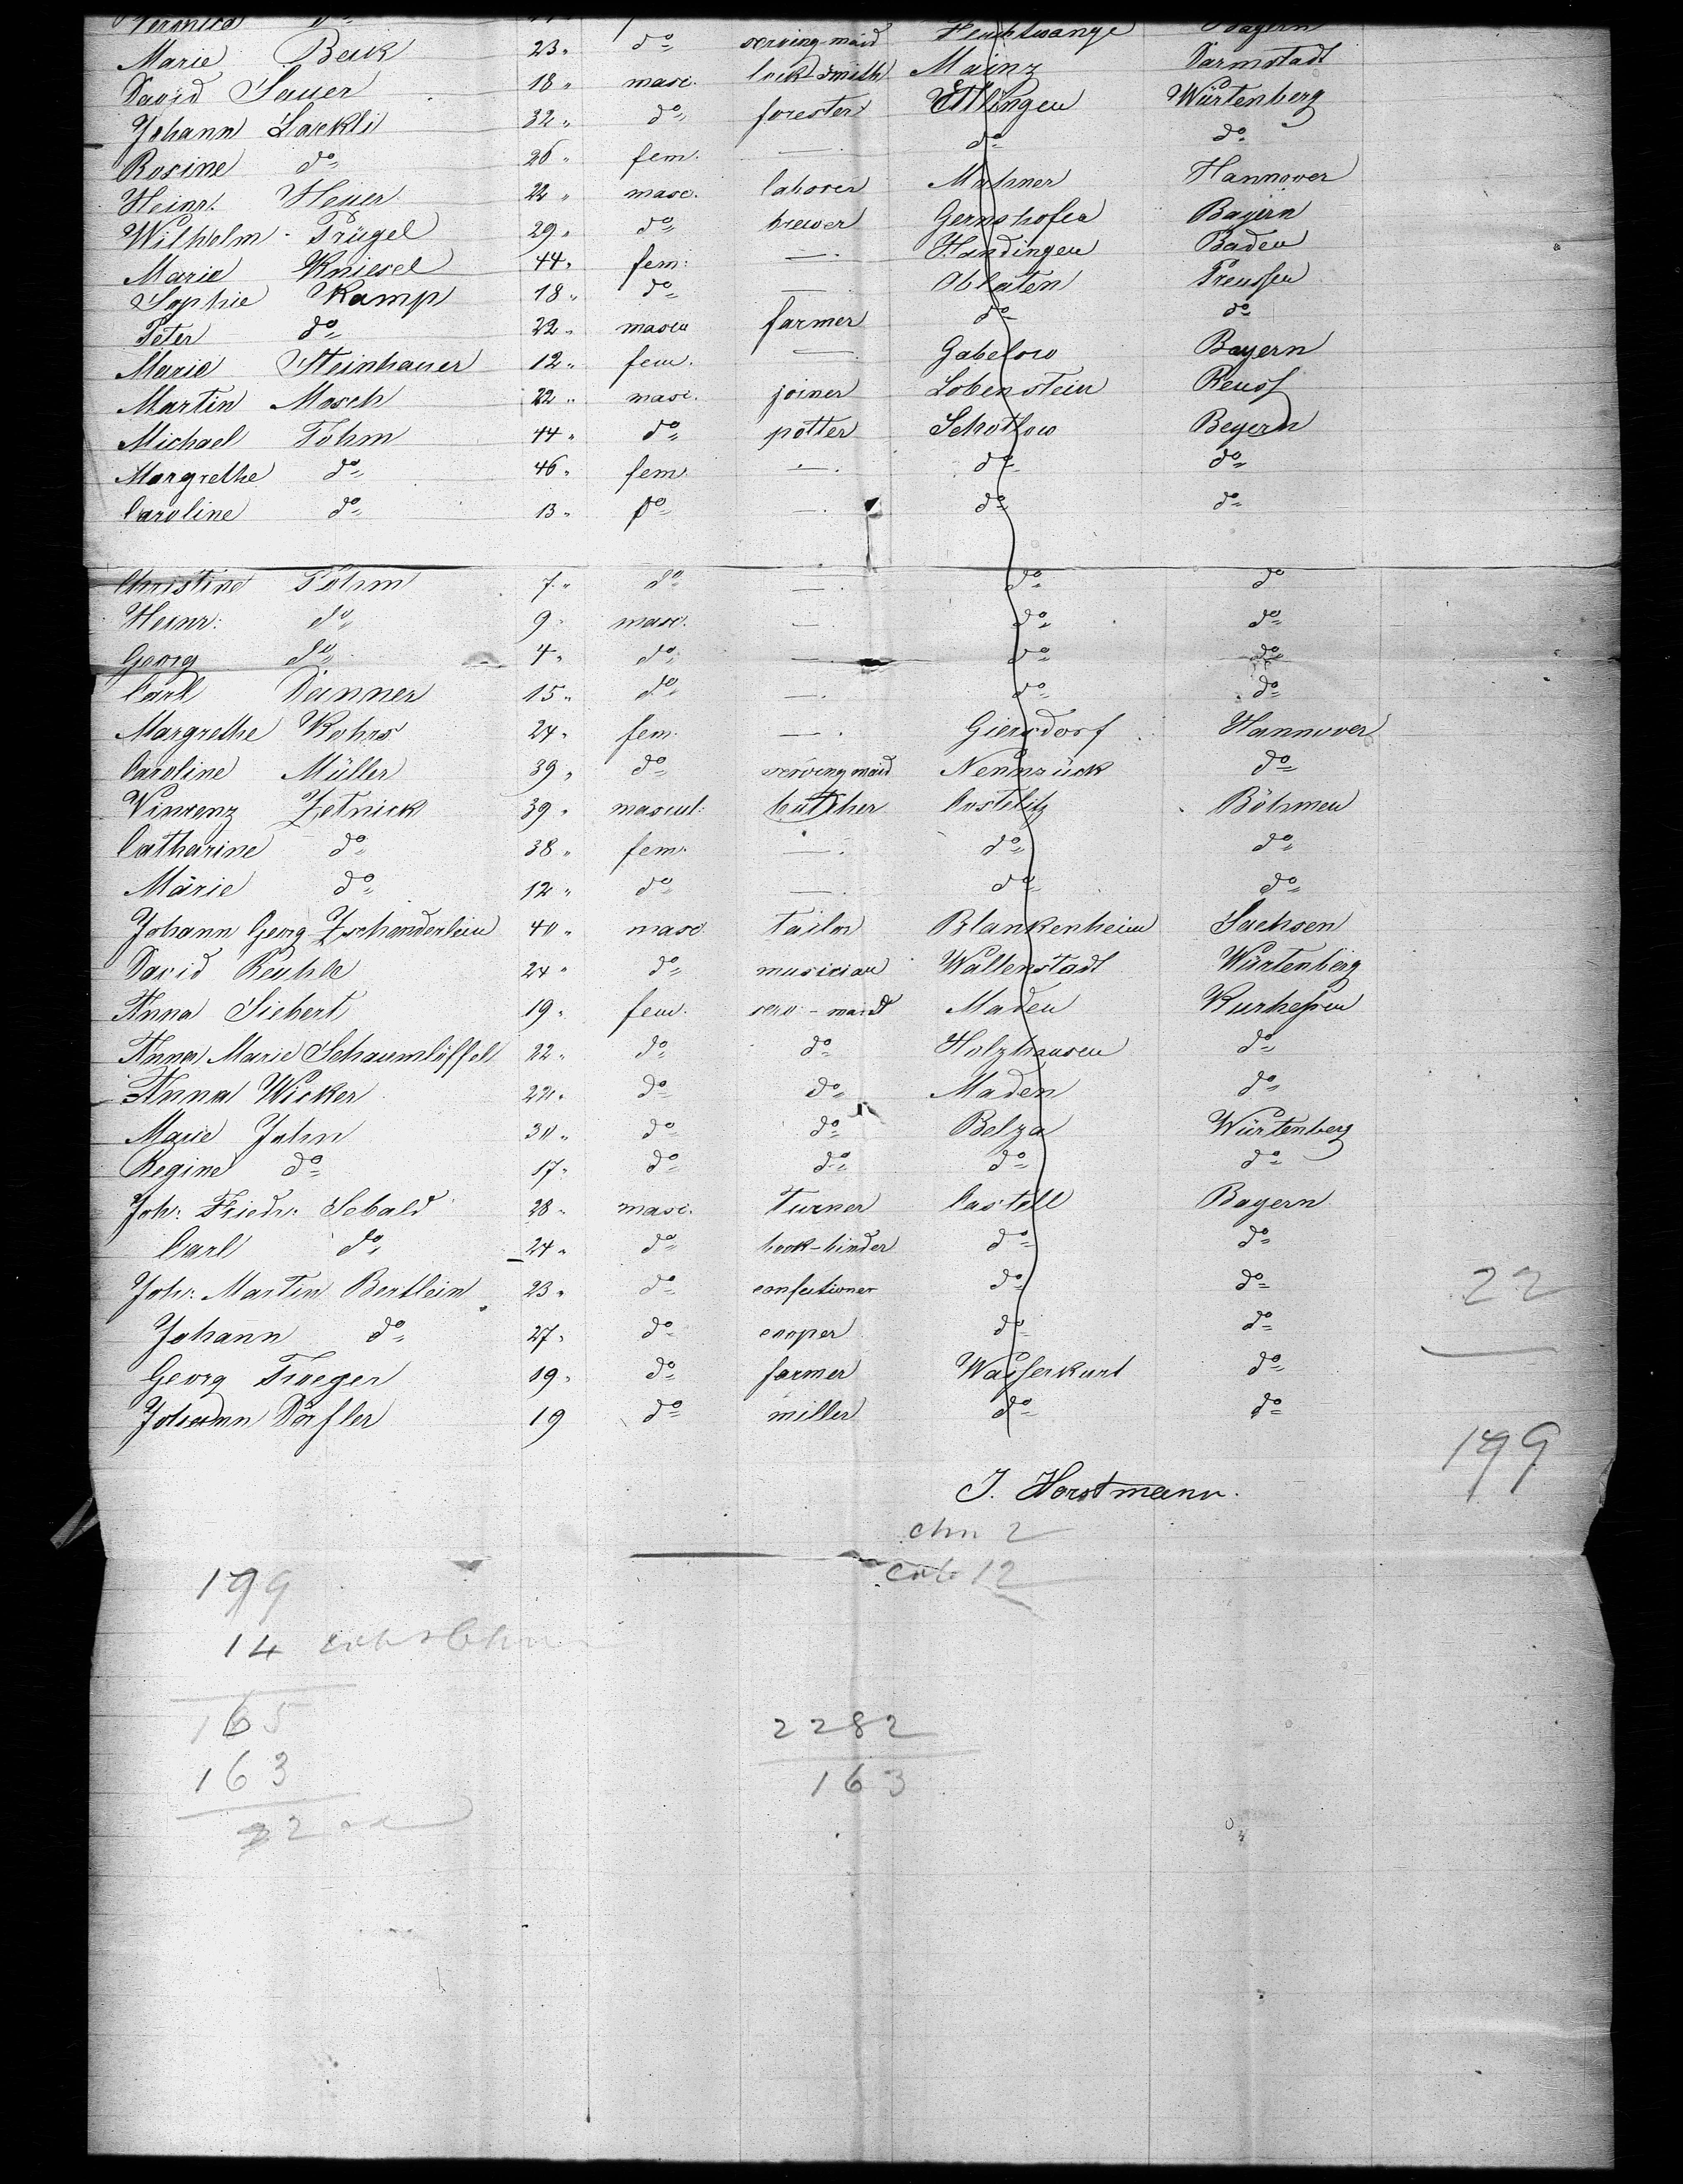 Veronica do 
Marie Beck 23 " do serving-maid Feuchtwange Bayern
David Sauer 18 " masc. lock-smith Mainz Darmstadt
Johann Lackli 32 " do forester Ettlingen Würtenberg
Rosine do 26 " fem. — do do
Heinr. Heuer 22 " masc. laborer Mahner Hannover
Wilhelm Prügel 29 " do brewer Gernshofen Bayern
Marie Kniesel 44 " fem: — Hundingen Baden
Sophie Kamp 18 " do — Ablaten Preussen
Peter do 22 " mascu farmer do do
Marie Steinhauer 12 " fem. — Gabelow Bayern
Martin Mosch 22 " masc. joiner Lobenstein Reuss
Michael Töhm 44 " do potter Schotlow Beyern
Margrethe do 46 " fem. — do do
Caroline do 13 " do — do do
Christine Töhm 7 " do — do do
Heinr: do 9 " masc. — do do
Georg do 4 " do — do do
Carl Danner 15 " do — do do
Margrethe Kohrs 24 " fem. — Giersdorf Hannover
Caroline Müller 39 " do serving maid Nennzück do
Vincenz Zetnick 39 " mascul: butcher Costelitz Böhmen
Catharine do 38 " fem. — do do
Marie do 12 " do — do do
Johann Georg Zschonderlein 40 " masc. Tailor Blankenheim Sachsen
David Reuhle 24 " do musician Wallenstadt Würtenberg
Anna Siebert 19 " fem. serv.-maid Maden Kurhessen
Anna Marie Schaumlöffel 22 " do do Holzhausen do
Anna Wicker 22 " do do Maden do
Marie John 30 " do do Belza Würtenberg
Regine do 17 " do do do do
Joh: Friedr: Sebald 28 " masc. Turner Castell Bayern
Carl do 24 " do book-binder do do
Joh: Martin Bertlein 23 " do confectioner do do
Johann do 27 " do cooper do do
Georg Troeger 19 " do farmer Wasserkurt do
Johann Dörfler 19 do miller do do
22
199
J. Horstmann.
chn 2
cab 12
199
14
165
163
22
2282
163